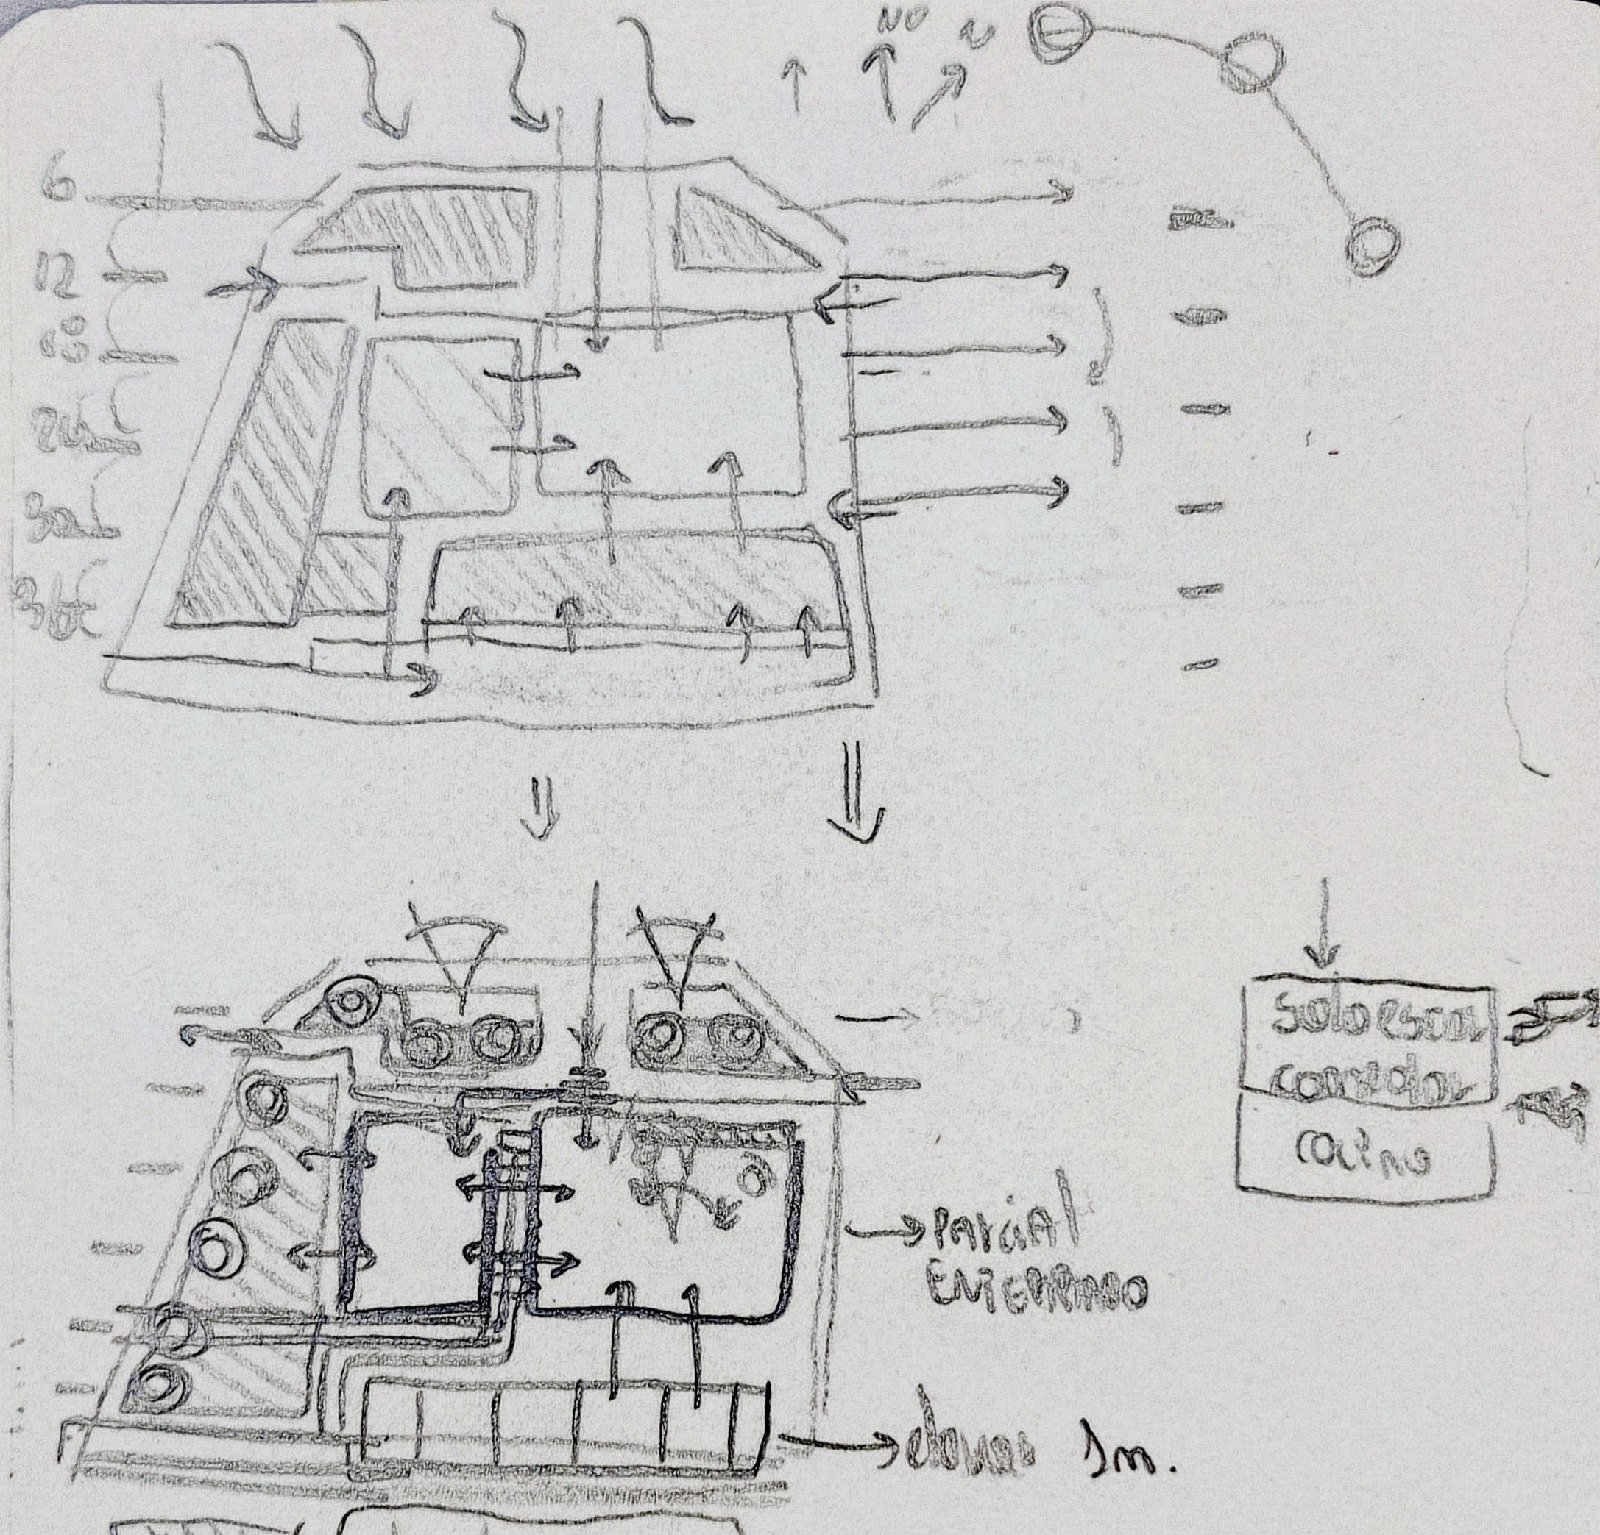 NO N
6
12
18
24
30
36
sala estar
comedor
cocina
PArciAl
ENTERRADO
elevar 1m.